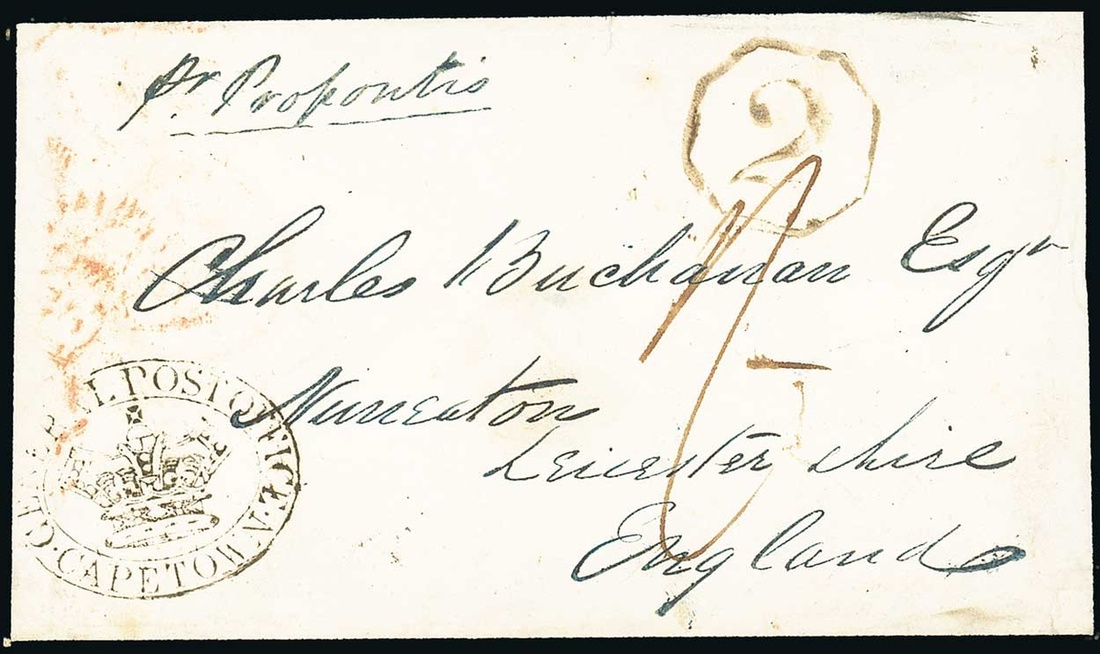 pr Propontis
2
1/-
Charles Buchanan Esqr
Nuneaton
Leicester shire
England
GENERAL POST OFFICE · CAPE TOWN ·